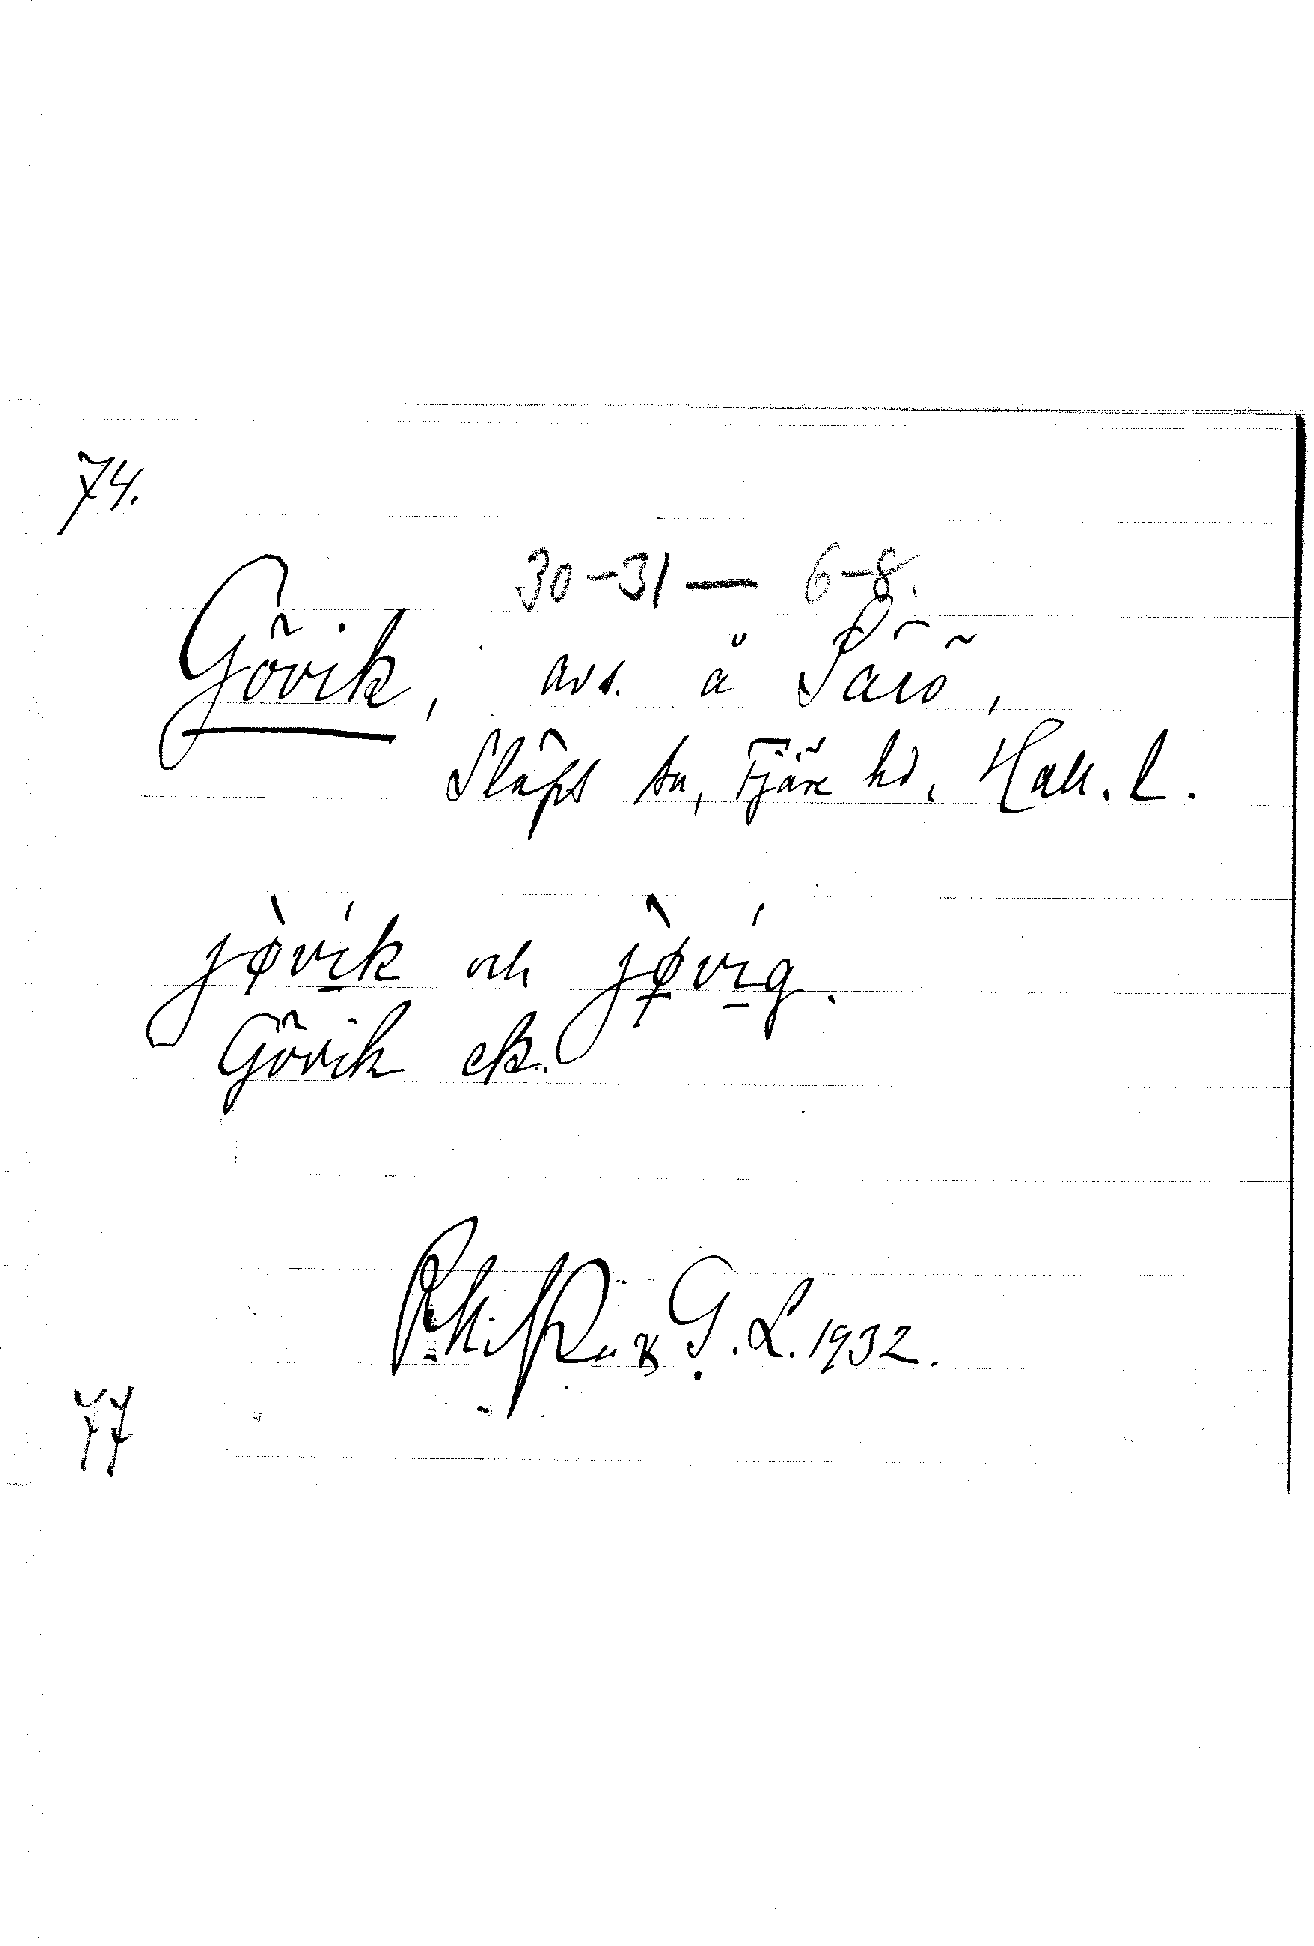 74.
30-31 — 6-8.
Gövik, avs. å Särö,
Släps sn, Fjäre hd, Hall. l.
jø̀vík och jø̀víg.
Gövik ek.
G. L. 1932.
77